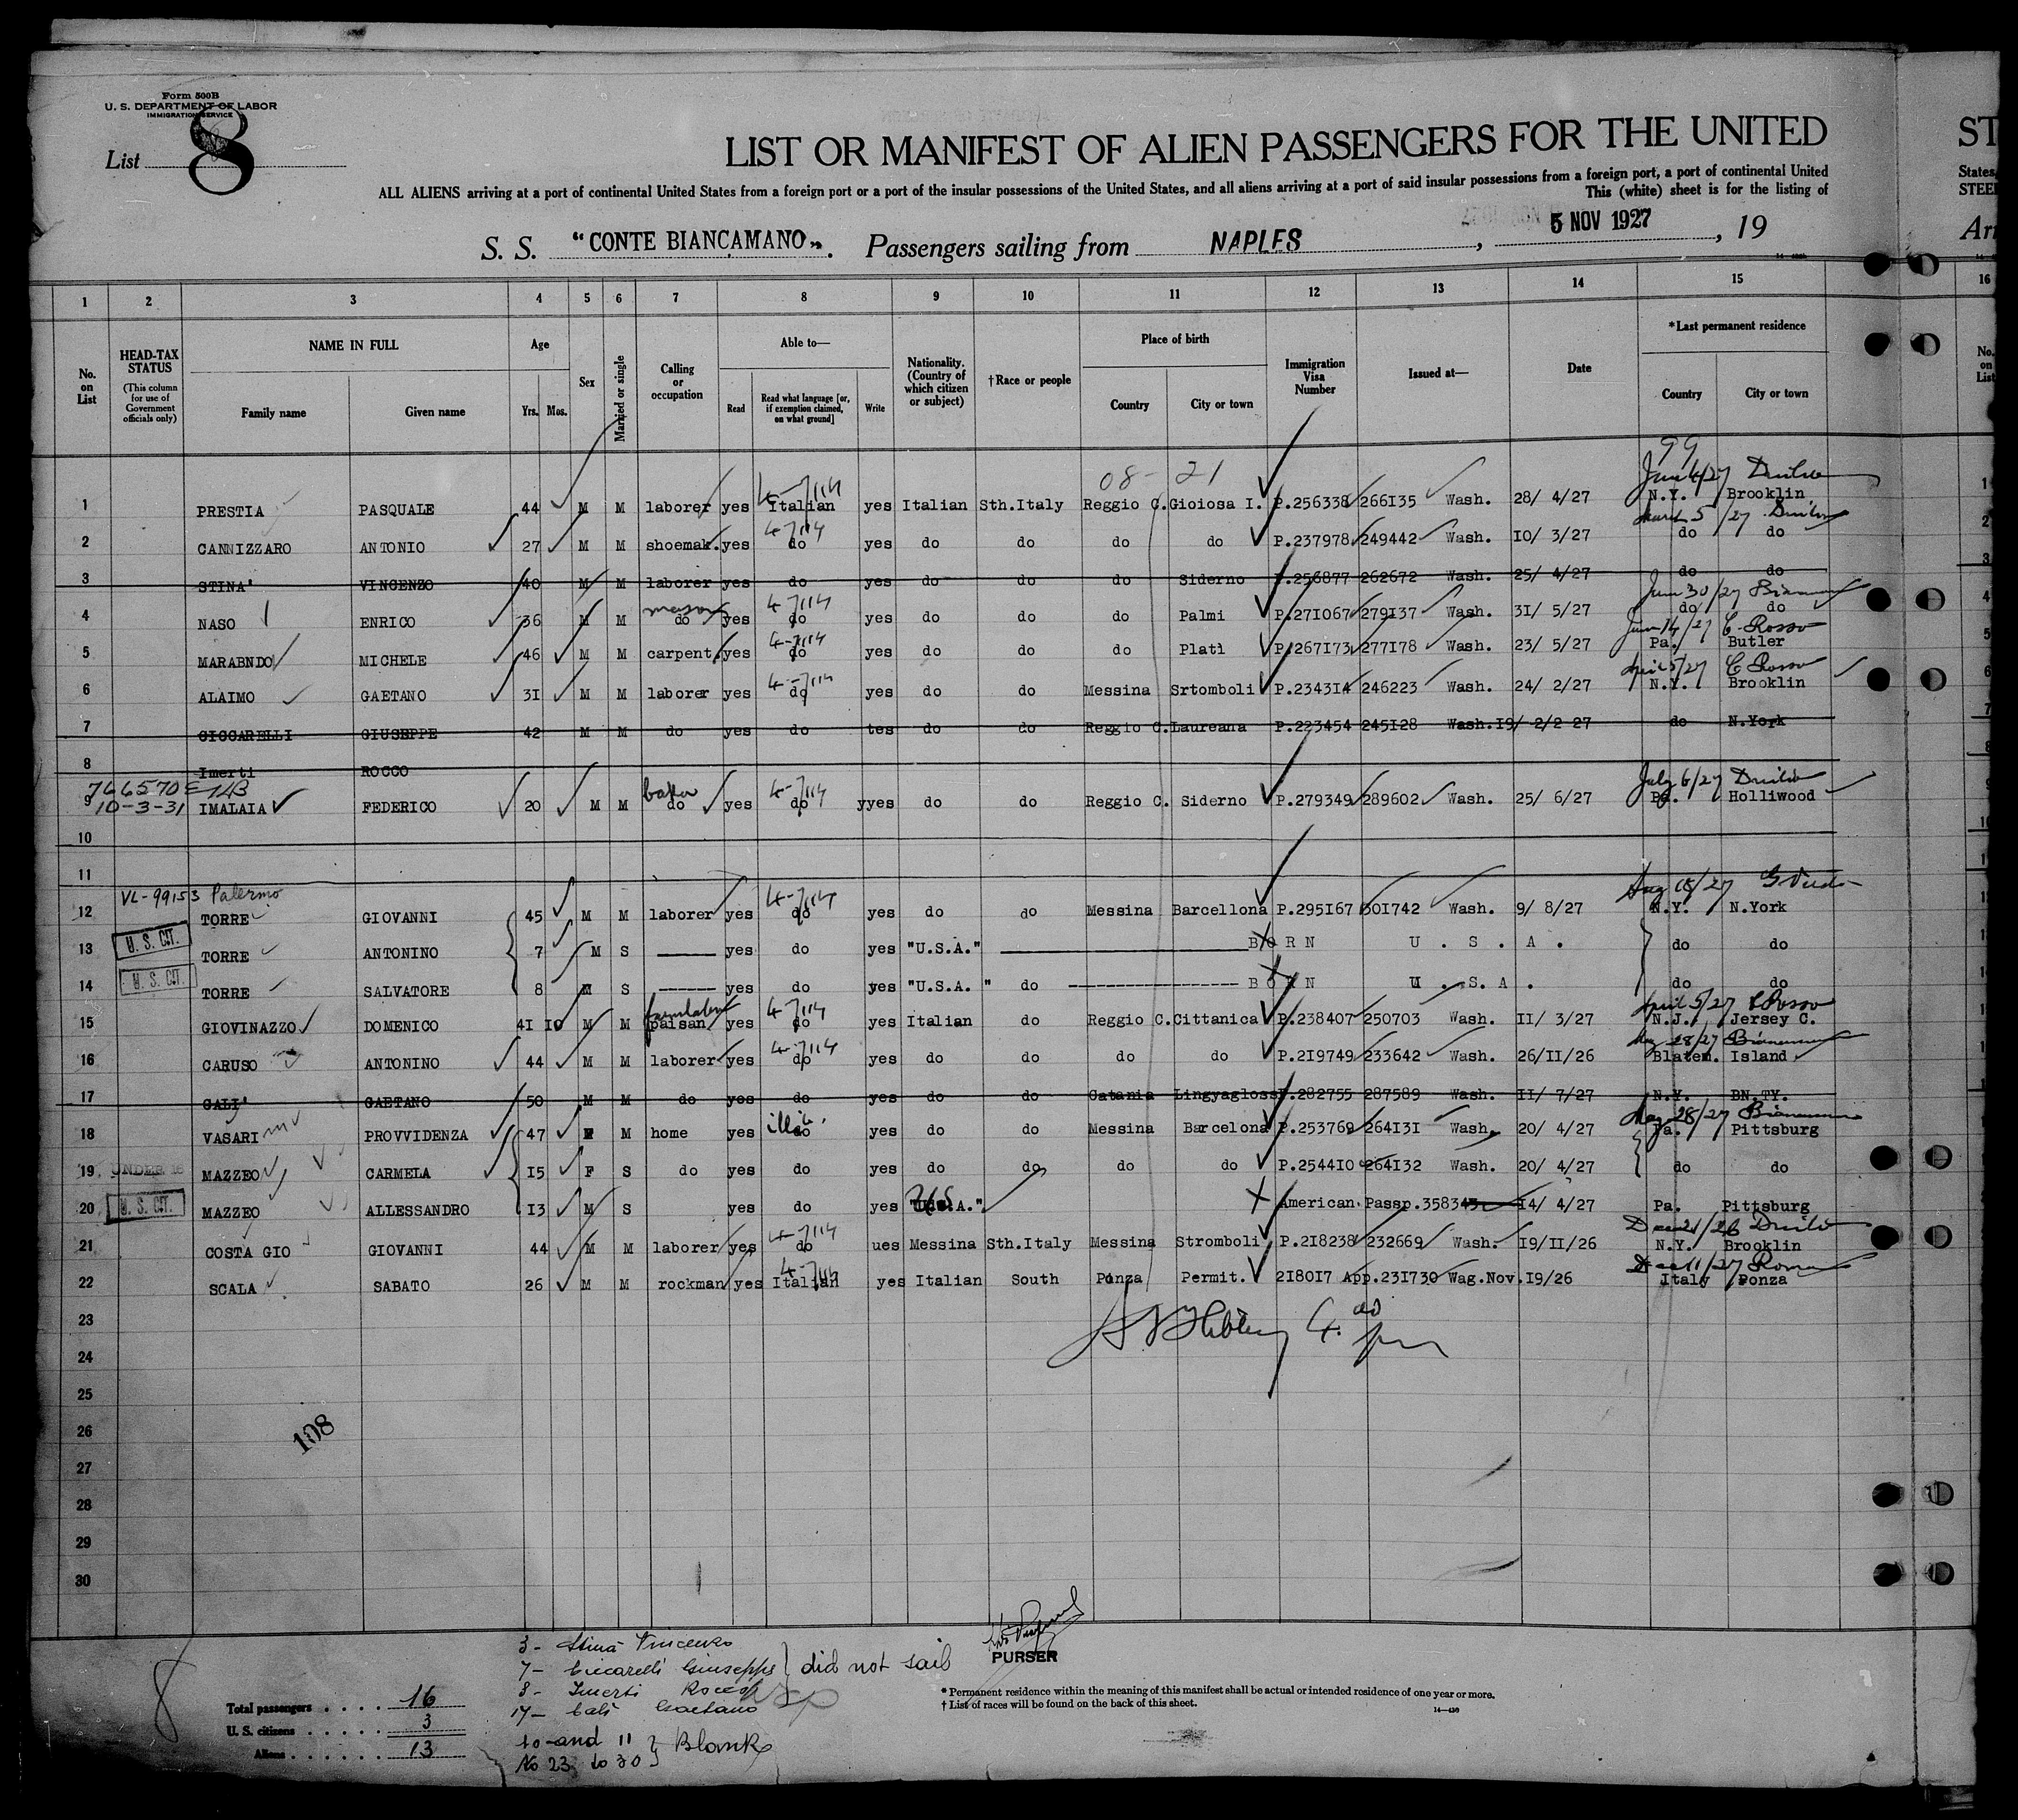 Form 500B
U. S. DEPARTMENT OF LABOR
IMMIGRATION SERVICE
List 8
LIST OR MANIFEST OF ALIEN PASSENGERS FOR THE UNITED
ST
ALL ALIENS arriving at a port of continental United States from a foreign port or a port of the insular possessions of the United States, and all aliens arriving at a port of said insular possessions from a foreign port, a port of continental United
States,
This (white) sheet is for the listing of
STEE
S. S. "CONTE BIANCAMANO". Passengers sailing from NAPLES, 5 NOV 1927, 19
Ar
1 2 3 4 5 6 7 8 9 10 11 12 13 14 15 16
No. on List
HEAD-TAX STATUS (This column for use of Government officials only)
NAME IN FULL
Family name
Given name
Age
Yrs. Mos.
Sex
Married or single
Calling or occupation
Able to—
Read
Read what language [or, if exemption claimed, on what ground]
Write
Nationality. (Country of which citizen or subject)
†Race or people
Place of birth
Country
City or town
Immigration Visa Number
Issued at—
Date
*Last permanent residence
Country
City or town
No. on List
99
08- 21
4-7/114
1 PRESTIA PASQUALE 44 M M laborer yes Italian yes Italian Sth.Italy Reggio C. Gioiosa I. P.256338 266135 Wash. 28/ 4/27 N.Y. Brooklin
March 5/27 Duilio
2 CANNIZZARO ANTONIO 27 M M shoemak. yes do yes do do do do P.237978 249442 Wash. 10/ 3/27 do do
3 STINA' VINCENZO 40 M M laborer yes do yes do do do Siderno P.256877 262672 Wash. 25/ 4/27 do do
mason 4-7/114 June 30/27
4 NASO ENRICO 36 M M do yes do yes do do do Palmi P.271067 279137 Wash. 31/ 5/27 do do
4-7/114 June 14/27 C. Rosso
5 MARABNDO MICHELE 46 M M carpent. yes do yes do do do Platì P.267173 277178 Wash. 23/ 5/27 Pa. Butler
4-7/114 April 5/27 C Rosso
6 ALAIMO GAETANO 31 M M laborer yes do yes do do Messina Srtomboli P.234314 246223 Wash. 24/ 2/27 N.Y. Brooklin
7 CICCARELLI GIUSEPPE 42 M M do yes do tes do do Reggio C. Laureana P.223454 245128 Wash. 19/ 2/2 27 do N.York
8 Imerti ROCCO
766570 E 143
baker 4-7/114 July 6/27 Duilio
9 10-3-31 IMALAIA FEDERICO 20 M M do yes do yyes do do Reggio C. Siderno P.279349 289602 Wash. 25/ 6/27 Pa. Holliwood
10
11
VL-99153 Palermo 4-7/114
12 TORRE GIOVANNI 45 M M laborer yes do yes do do Messina Barcellona P.295167 301742 Wash. 9/ 8/27 N.Y. N.York
U. S. CIT.
13 TORRE ANTONINO 7 M S yes do yes "U.S.A." BORN U . S . A . do do
U. S. CIT.
14 TORRE SALVATORE 8 M S yes do yes "U.S.A. " do BORN U . S.A . do do
4-7/114 April 5/27 C Rosso
15 GIOVINAZZO DOMENICO 41 10 M M paisan yes do yes Italian do Reggio C. Cittanica P.238407 250703 Wash. 11/ 3/27 N.J. Jersey C.
4-7/114
16 CARUSO ANTONINO 44 M M laborer yes do yes do do do do P.219749 233642 Wash. 26/11/26 Blaten. Island
17 CALI' GAETANO 50 M M do yes do yes do do Catania Lingyagloss P.282755 287589 Wash. 11/ 7/27 N.Y. BN.TY.
18 VASARI PROVVIDENZA 47 F M home yes do yes do do Messina Barcelona P.253769 264131 Wash. 20/ 4/27 Pa. Pittsburg
19 UNDER 16 MAZZEO CARMELA 15 F S do yes do yes do do do do P.254410 264132 Wash. 20/ 4/27 do do
U. S. CIT.
20 MAZZEO ALLESSANDRO 13 M S yes do yes "U.S.A." American Passp.358343 14/ 4/27 Pa. Pittsburg
4-7/114
21 COSTA GIO GIOVANNI 44 M M laborer yes do ues Messina Sth.Italy Messina Stromboli P.218238 232669 Wash. 19/11/26 N.Y. Brooklin
22 SCALA SABATO 26 M M rockman yes Italian yes Italian South Ponza Permit. 218017 App.231730 Wag.Nov.19/26 Italy Ponza
23
24
25
26
108
27
28
29
30
3- Stinà Vincenzo
7- Ciccarelli Giuseppe
8- Imerti Rocco
17- Calì Gaetano
did not sail
10 and 11
No 23 to 30
Blank
PURSER
* Permanent residence within the meaning of this manifest shall be actual or intended residence of one year or more.
† List of races will be found on the back of this sheet.
14—430
8
Total passengers . . . . 16
U. S. citizens . . . . . 3
Aliens . . . . . . 13